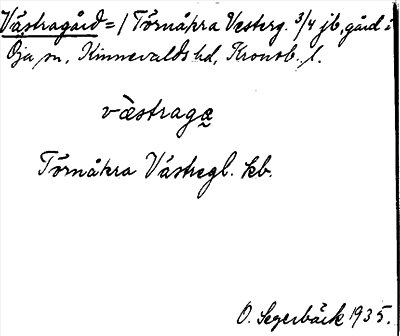 Västragård = / Törnåkra Vesterg. 3/4 jb, gård i
Öja sn, Kinnevalds hd, Kronob. l.
vä̀straga̰
Törnåkra Västregl. kb.
O. Segerbäck 1935.